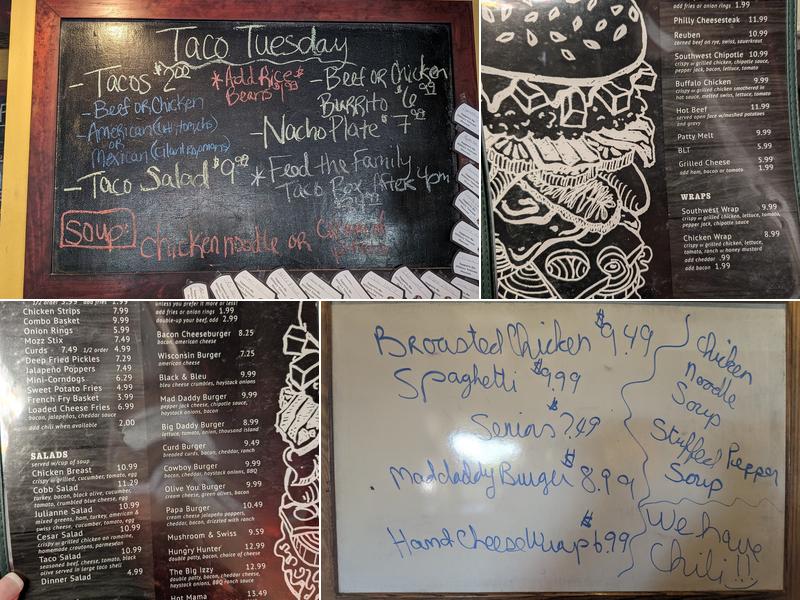 Taco Tuesday
- Tacos $2.00
*Add Rice*
Beans $1.99
- Beef or Chicken
Burrito $6.99
- Beef or Chicken
- American
or
Mexican
- Nacho Plate $7.99
- Taco Salad $9.99
* Feed the Family
Taco Box After 4pm
Soup: Chicken noodle or
add fries or onion rings 1.99
Philly Cheesesteak 11.99
Reuben 10.99
corned beef on rye, swiss, sauerkraut
Southwest Chipotle 10.99
crispy or grilled chicken, chipotle sauce,
pepper jack, bacon, lettuce, tomato
Buffalo Chicken 9.99
crispy or grilled chicken smothered in
hot sauce, melted swiss, lettuce, tomato
Hot Beef 11.99
served open face w/mashed potatoes
and gravy
Patty Melt 9.99
BLT 5.99
Grilled Cheese 5.99
add ham, bacon or tomato 1.99
WRAPS
Southwest Wrap 9.99
crispy or grilled chicken, lettuce, tomato,
pepper jack, chipotle sauce
Chicken Wrap 8.99
crispy or grilled chicken, lettuce,
tomato, ranch or honey mustard
add cheddar .99
add bacon 1.99
1/2 order 5.99 add fries 1.99
Chicken Strips 7.99
Combo Basket 9.99
Onion Rings 5.99
Mozz Stix 7.49
Curds 7.49 1/2 order 4.99
Deep Fried Pickles 7.29
Jalapeño Poppers 7.49
Mini-Corndogs 6.29
Sweet Potato Fries 4.99
French Fry Basket 3.99
Loaded Cheese Fries 6.99
bacon, jalapeños, cheddar sauce
add chili when available 2.00
SALADS
served w/cup of soup
Chicken Breast 10.99
crispy or grilled, cucumber, tomato, egg
Cobb Salad 11.29
turkey, bacon, black olive, cucumber,
tomato, crumbled blue cheese, egg
Julianne Salad 10.99
mixed greens, ham, turkey, american &
swiss cheese, cucumber, tomato, egg
Cesar Salad 10.99
crispy or grilled chicken on romaine,
homemade croutons, parmesan
Taco Salad 10.99
seasoned beef, cheese, tomato, black
olive served in large taco shell
Dinner Salad 4.99
unless you prefer it more or less!
add fries or onion rings 1.99
double-up your beef, add 2.99
Bacon Cheeseburger 8.25
bacon, american cheese
Wisconsin Burger 7.25
american cheese
Black & Bleu 9.99
bleu cheese crumbles, haystack onions
Mad Daddy Burger 9.99
pepper jack cheese, chipotle sauce,
haystack onions, bacon
Big Daddy Burger 8.99
lettuce, tomato, onion, thousand island
Curd Burger 9.49
breaded curds, bacon, cheddar, ranch
Cowboy Burger 9.99
bacon, cheddar, haystack onions, BBQ
Olive You Burger 9.99
cream cheese, green olives, bacon
Papa Burger 10.49
cream cheese jalapeño poppers,
cheddar, bacon, drizzled with ranch
Mushroom & Swiss 9.59
Hungry Hunter 12.99
double patty, bacon, choice of cheese
The Big Izzy 12.99
double patty, bacon, cheddar cheese,
haystack onions, BBQ ranch sauce
Hot Mama 13.49
Broasted Chicken $9.49
Spaghetti $9.99
Seniors $7.49
Maddaddy Burger $8.99
Ham & Cheese Wrap $6.99
Chicken
noodle
Soup
Stuffed Pepper
Soup
We have
Chili!!